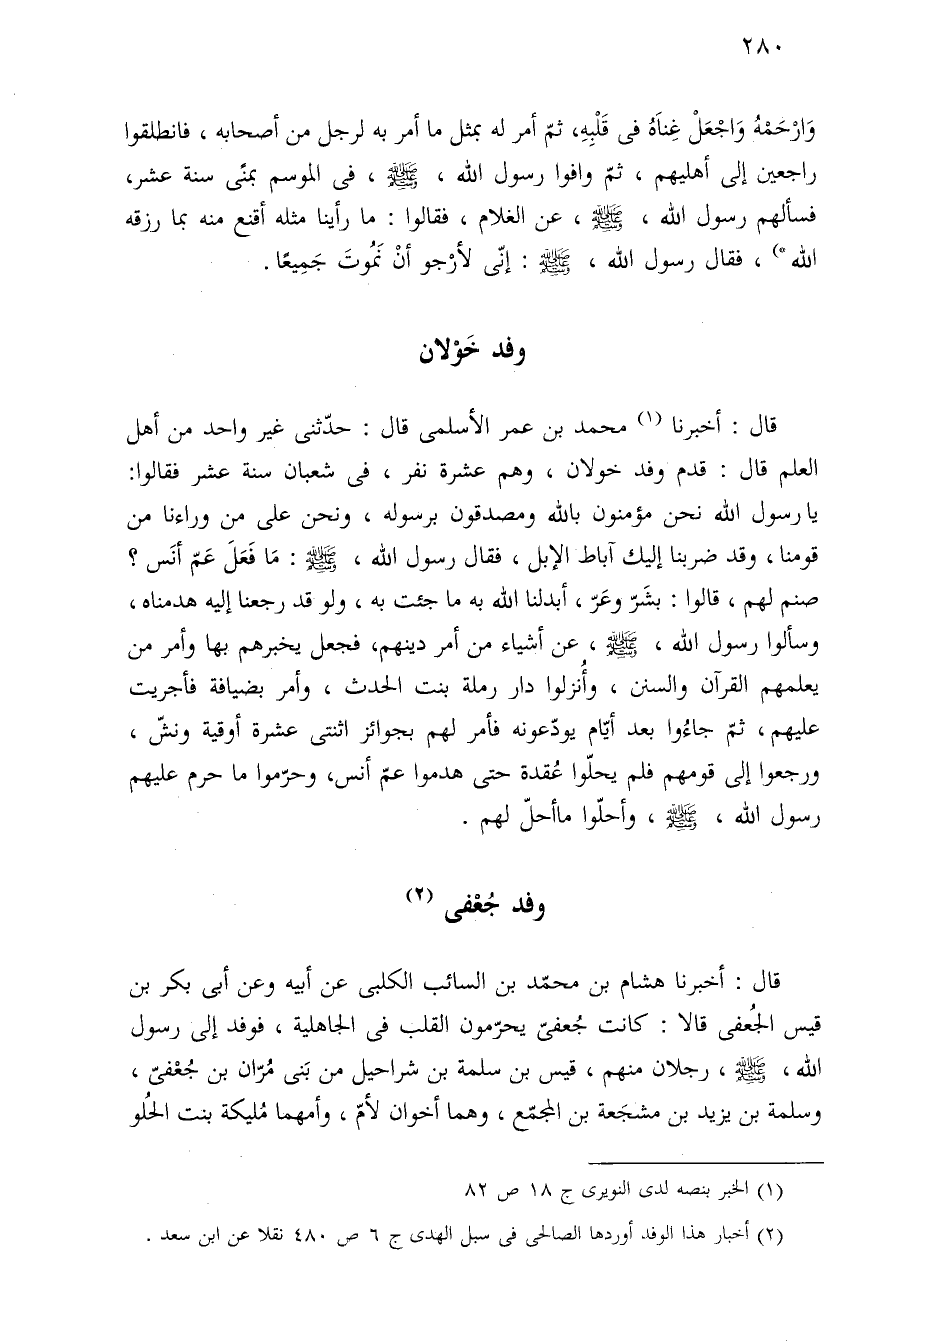 ٢٨٠
وَارْحَمْهُ وَاجْعَلْ غِناَهُ فى قَلْبِهِ، ثمّ أمر له بمثل ما أمر به لرجل من أصحابه ، فانطلقوا
راجعين إلى أهليهم ، ثمّ وافوا رسول الله ، ﷺ ، فى الموسم بمنًى سنة عشر،
فسألهم رسول الله ، ﷺ ، عن الغلام ، فقالوا : ما رأينا مثله أقنع منه بما رزقه
الله *) ، فقال رسول الله ، ﷺ : إنّى لأرْجو أنْ نَمُوتَ جَمِيعًا .
وفد خَوْلان
قال : أخبرنا (١) محمد بن عمر الأسلمى قال : حدّثنى غير واحد من أهل
العلم قال : قدم وفد خولان ، وهم عشرة نفر ، فى شعبان سنة عشر فقالوا:
يا رسول الله نحن مؤمنون بالله ومصدقون برسوله ، ونحن على من وراءنا من
قومنا ، وقد ضربنا إليك آباط الإبل ، فقال رسول الله ، ﷺ : مَا فَعَلَ عَمّ أنَس ؟
صنم لهم ، قالوا : بشَرّ وعَرّ ، أبدلنا الله به ما جئت به ، ولو قد رجعنا إليه هدمناه ،
وسألوا رسول الله ، ﷺ ، عن أشياء من أمر دينهم، فجعل يخبرهم بها وأمر من
يعلمهم القرآن والسنن ، وأُنزلوا دار رملة بنت الحدث ، وأمر بضيافة فأجريت
عليهم ، ثمّ جاءُوا بعد أيّام يودّعونه فأمر لهم بجوائز اثنتى عشرة أوقية ونشّ ،
ورجعوا إلى قومهم فلم يحلّوا عُقدة حتى هدموا عمّ أنس، وحرّموا ما حرم عليهم
رسول الله ، ﷺ ، وأحلّوا ماأحلّ لهم .
وفد جُعْفى (٢)
قال : أخبرنا هشام بن محمّد بن السائب الكلبى عن أبيه وعن أبى بكر بن
قيس الجُعفى قالا : كانت جُعفىّ يحرّمون القلب فى الجاهلية ، فوفد إلى رسول
الله ، ﷺ ، رجلان منهم ، قيس بن سلمة بن شراحيل من بَنى مُرّان بن جُعْفىّ ،
وسلمة بن يزيد بن مشجَعة بن المجمّع ، وهما أخوان لأمّ ، وأمهما مُليكة بنت الحُلو
(١) الخبر بنصه لدى النويرى ج ١٨ ص ٨٢
(٢) أخبار هذا الوفد أوردها الصالحى فى سبل الهدى ج ٦ ص ٤٨٠ نقلا عن ابن سعد .